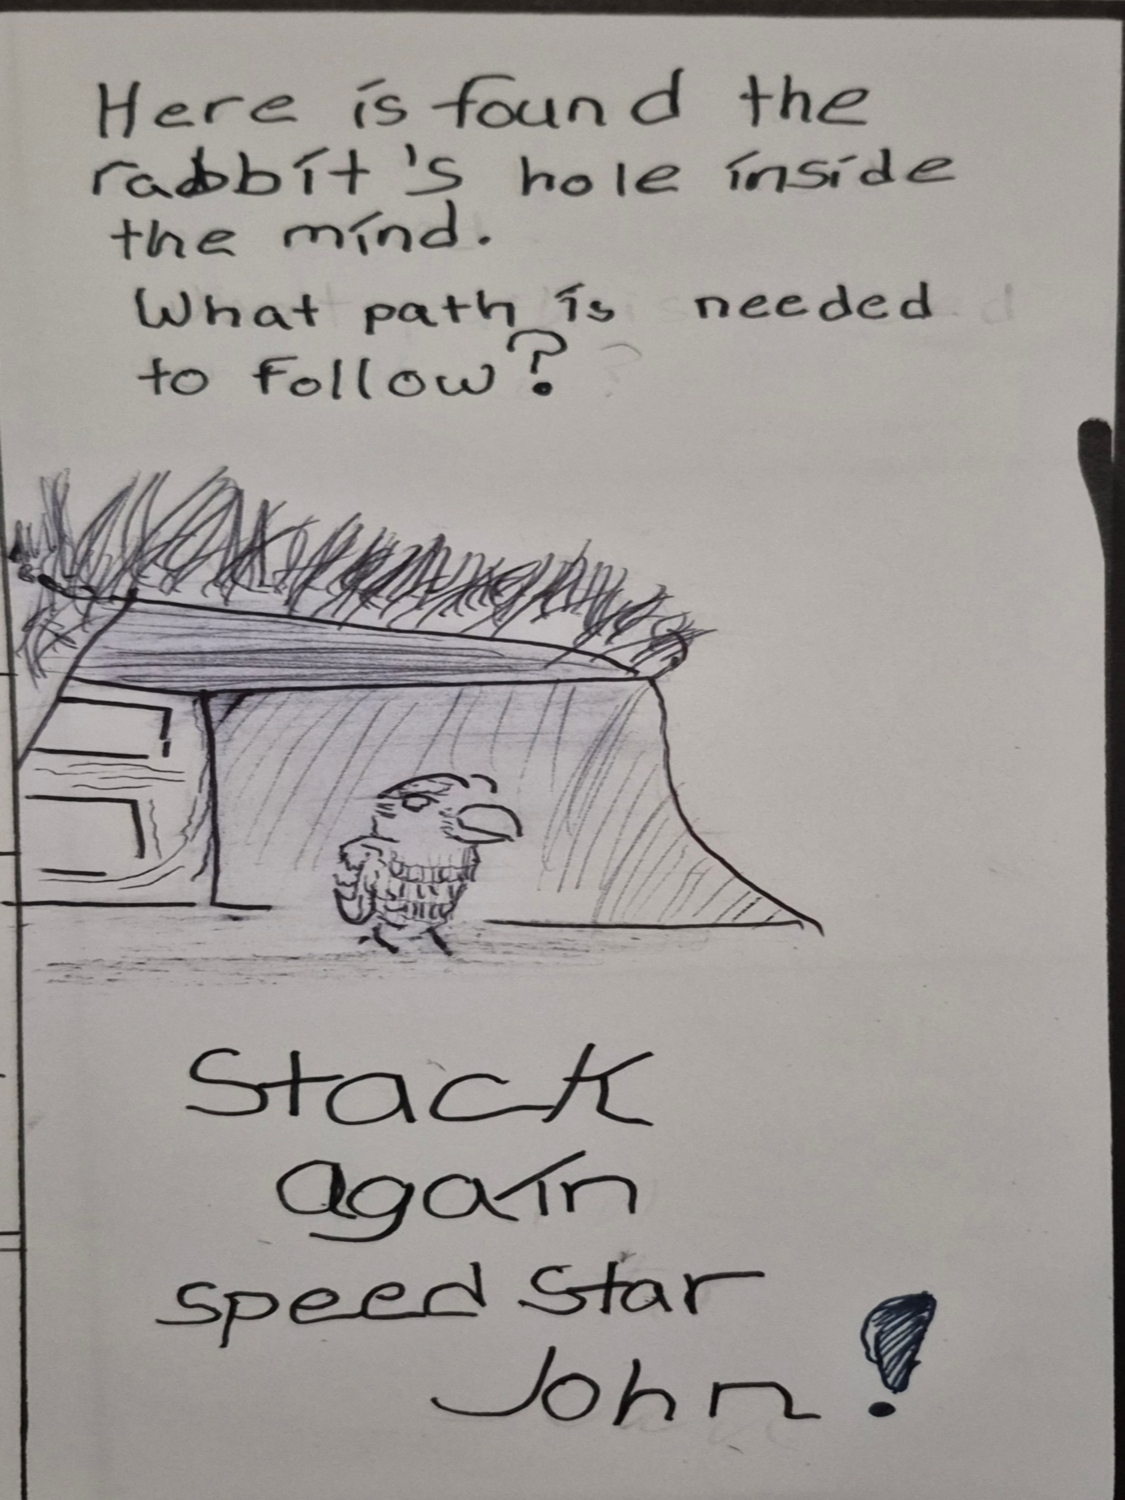 Here is found the
rabbit's hole inside
the mind.
What path is needed
to follow?
Stack
again
speed star
John!